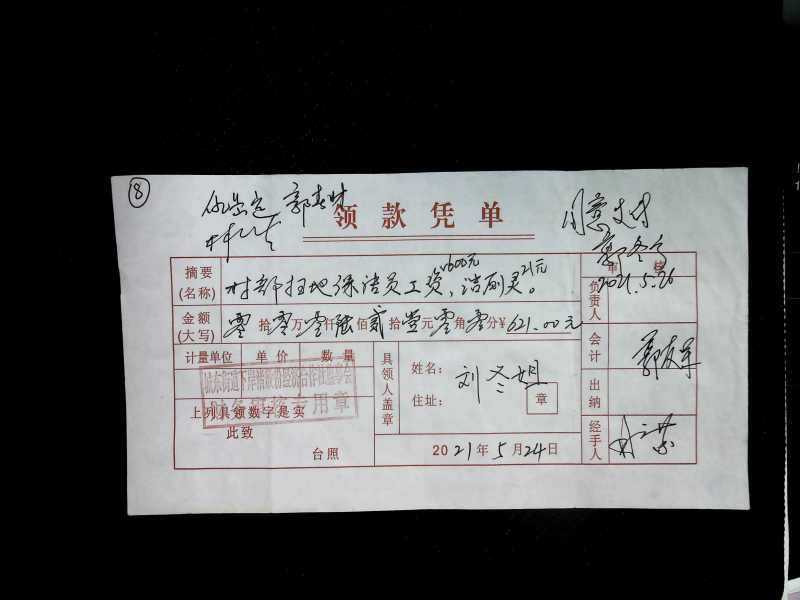 ⑧
郭春财
领款凭单
同意支付
2021.5.26
审核
摘要(名称) 村部扫地保洁员工资600元、洁厕灵21元。
金额(大写) 零拾零万零仟陆佰贰拾壹元零角零分¥621.00元
计量单位 单价 数量
财务审核专用章
上列具领数字是实
此致
台照
具领人盖章
姓名：刘冬姐
住址：
章
2021年5月24日
负责人
会计 郭友军
出纳
经手人